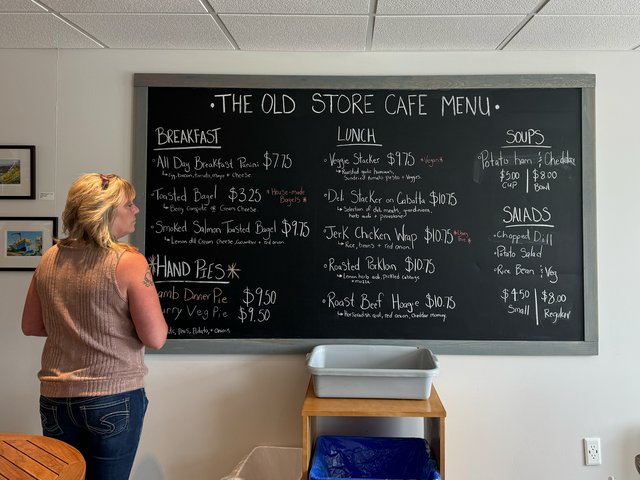 • THE OLD STORE CAFE MENU •
BREAKFAST
• All Day Breakfast Panini $7.75
↳ Egg, bacon, tomato, mayo + cheese
• Toasted Bagel $3.25 *House-made Bagels*
↳ Berry Compote & Cream Cheese
• Smoked Salmon Toasted Bagel $9.75
↳ Lemon dill Cream Cheese, Cucumber + red onion
*HAND PIES*
amb Dinner Pie $9.50
urry Veg Pie $9.50
Peas, Potato, + onions
LUNCH
• Veggie Stacker $9.75 *Vegan*
↳ Roasted garlic hummus,
Sundried tomato pesto + Veggies.
• Deli Stacker on Ciabatta $10.75
↳ Selection of deli meats,
herb aioli + provolone
• Jerk Chicken Wrap $10.75
↳ Rice, beans + red onion
• Roasted Porkloin $10.75
↳ Lemon herb aioli, Pickled cabbage
• Roast Beef Hoagie $10.75
↳ Horseradish aioli, red onion, cheddar
SOUPS
• Potato ham & Cheddar
$5.00 | $8.00
Cup | Bowl
SALADS
• Chopped Dill
• Potato Salad
• Rice Bean & Veg
$4.50 | $8.00
Small | Regular